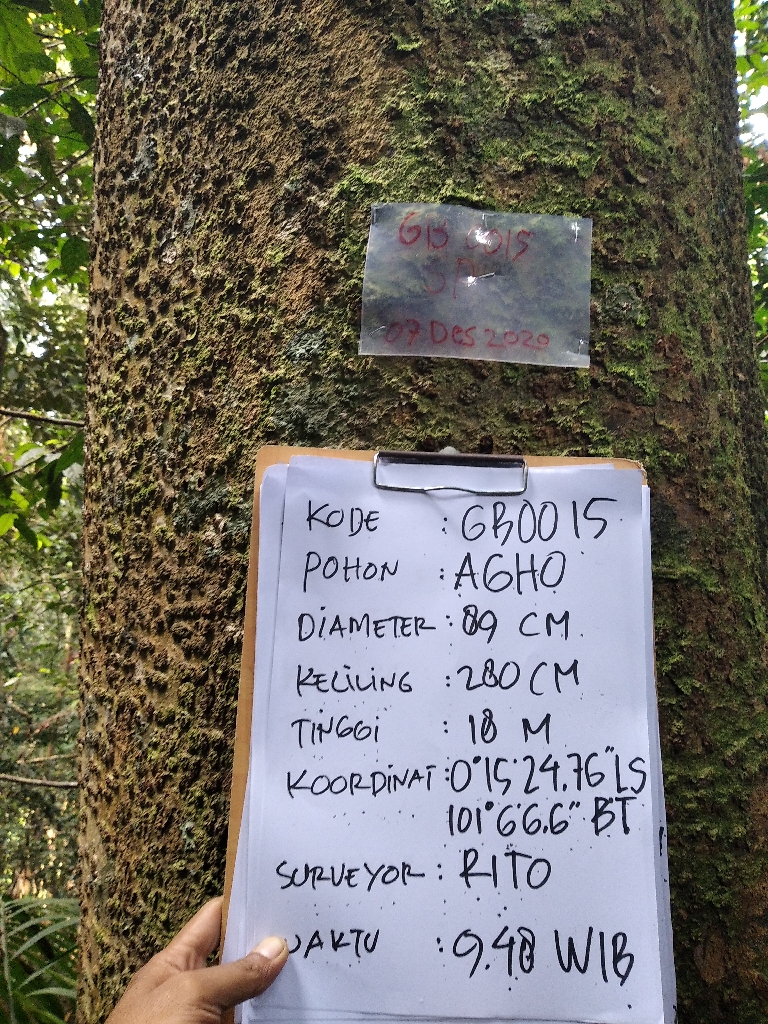 GB 0015
07 Des 2020
KODE : GB0015
POHON : AGHO
DIAMETER : 89 CM
KELILING : 280 CM
TINGGI : 18 M
KOORDINAT : 0°15'24.76"LS
101°6'6.6" BT
SURVEYOR : RITO
WAKTU : 9.48 WIB